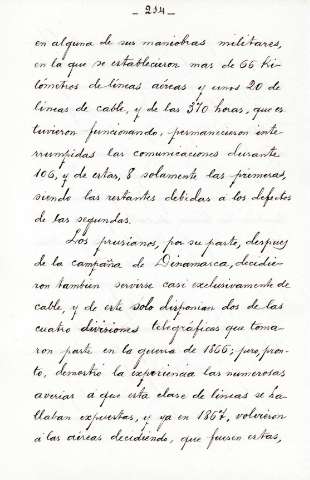 - 214 -
en alguna de sus maniobras militares,
en la que se establecieron mas de 66 ki-
lómetros de líneas aéreas y unos 20 de
líneas de cable, y de las 370 horas, que es-
tuvieron funcionando, permanecieron inte-
rrumpidas las comunicaciones durante
106, y de estas, 8 solamente las primeras,
siendo las restantes debidas a los defectos
de las segundas.
Los prusianos, por su parte, despues
de la campaña de Dinamarca, decidie-
ron tambien servirse casi exclusivamente de
cable, y de este solo disponian dos de las
cuatro divisiones telegráficas que toma-
ron parte en la guerra de 1866; pero, pron-
to, demostró la experiencia las numerosas
averias a que esta clase de lineas se ha-
llaban expuestas, y ya en 1867, volvieron
á las aéreas decidiendo, que fuesen estas,